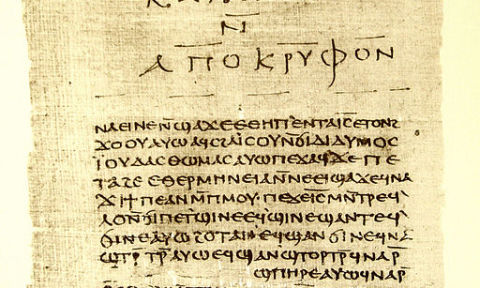 ⲛ̄
ⲁⲡⲟⲕⲣⲩⲫⲟⲛ
ⲛⲁⲉⲓⲛⲉⲛ̄ϣⲁϫⲉⲉⲑⲏⲡʼⲉⲛⲧⲁⲓ̅ⲥ̅ⲉⲧⲟⲛϩ
ϫⲟⲟⲩⲁⲩⲱⲁϥⲥϩⲁⲓ̈ⲥⲟⲩⲛ̄ϭⲓⲇⲓⲇⲩⲙⲟⲥ
ⲓ̈ⲟⲩⲇⲁⲥⲑⲱⲙⲁⲥⲁⲩⲱⲡⲉϫⲁϥϫⲉⲡⲉ
ⲧⲁϩⲉⲉⲑⲉⲣⲙⲏⲛⲉⲓⲁⲛ̄ⲛⲉⲉⲓϣⲁϫⲉϥⲛⲁ
ϫⲓϯⲡⲉⲁⲛⲙ̄ⲡⲙⲟⲩⲡⲉϫⲉⲓ̅ⲥ̅ⲙⲛ̄ⲧⲣⲉϥ
ⲗⲟⲛ̄ϭⲓⲡⲉⲧϣⲓⲛⲉⲉϥϣⲓⲛⲉϣⲁⲛⲧⲉϥ
ϭⲓⲛⲉⲁⲩⲱϩⲟⲧⲁⲛⲉϥϣⲁⲛϭⲓⲛⲉϥⲛⲁ
ϣⲧⲣ̄ⲧⲣ̄ⲁⲩⲱⲉϥϣⲁⲛϣⲧⲟⲣⲧⲣ̄ϥⲛⲁⲣ̄
ϣⲡⲏⲣⲉⲁⲩⲱϥⲛⲁⲣ̄